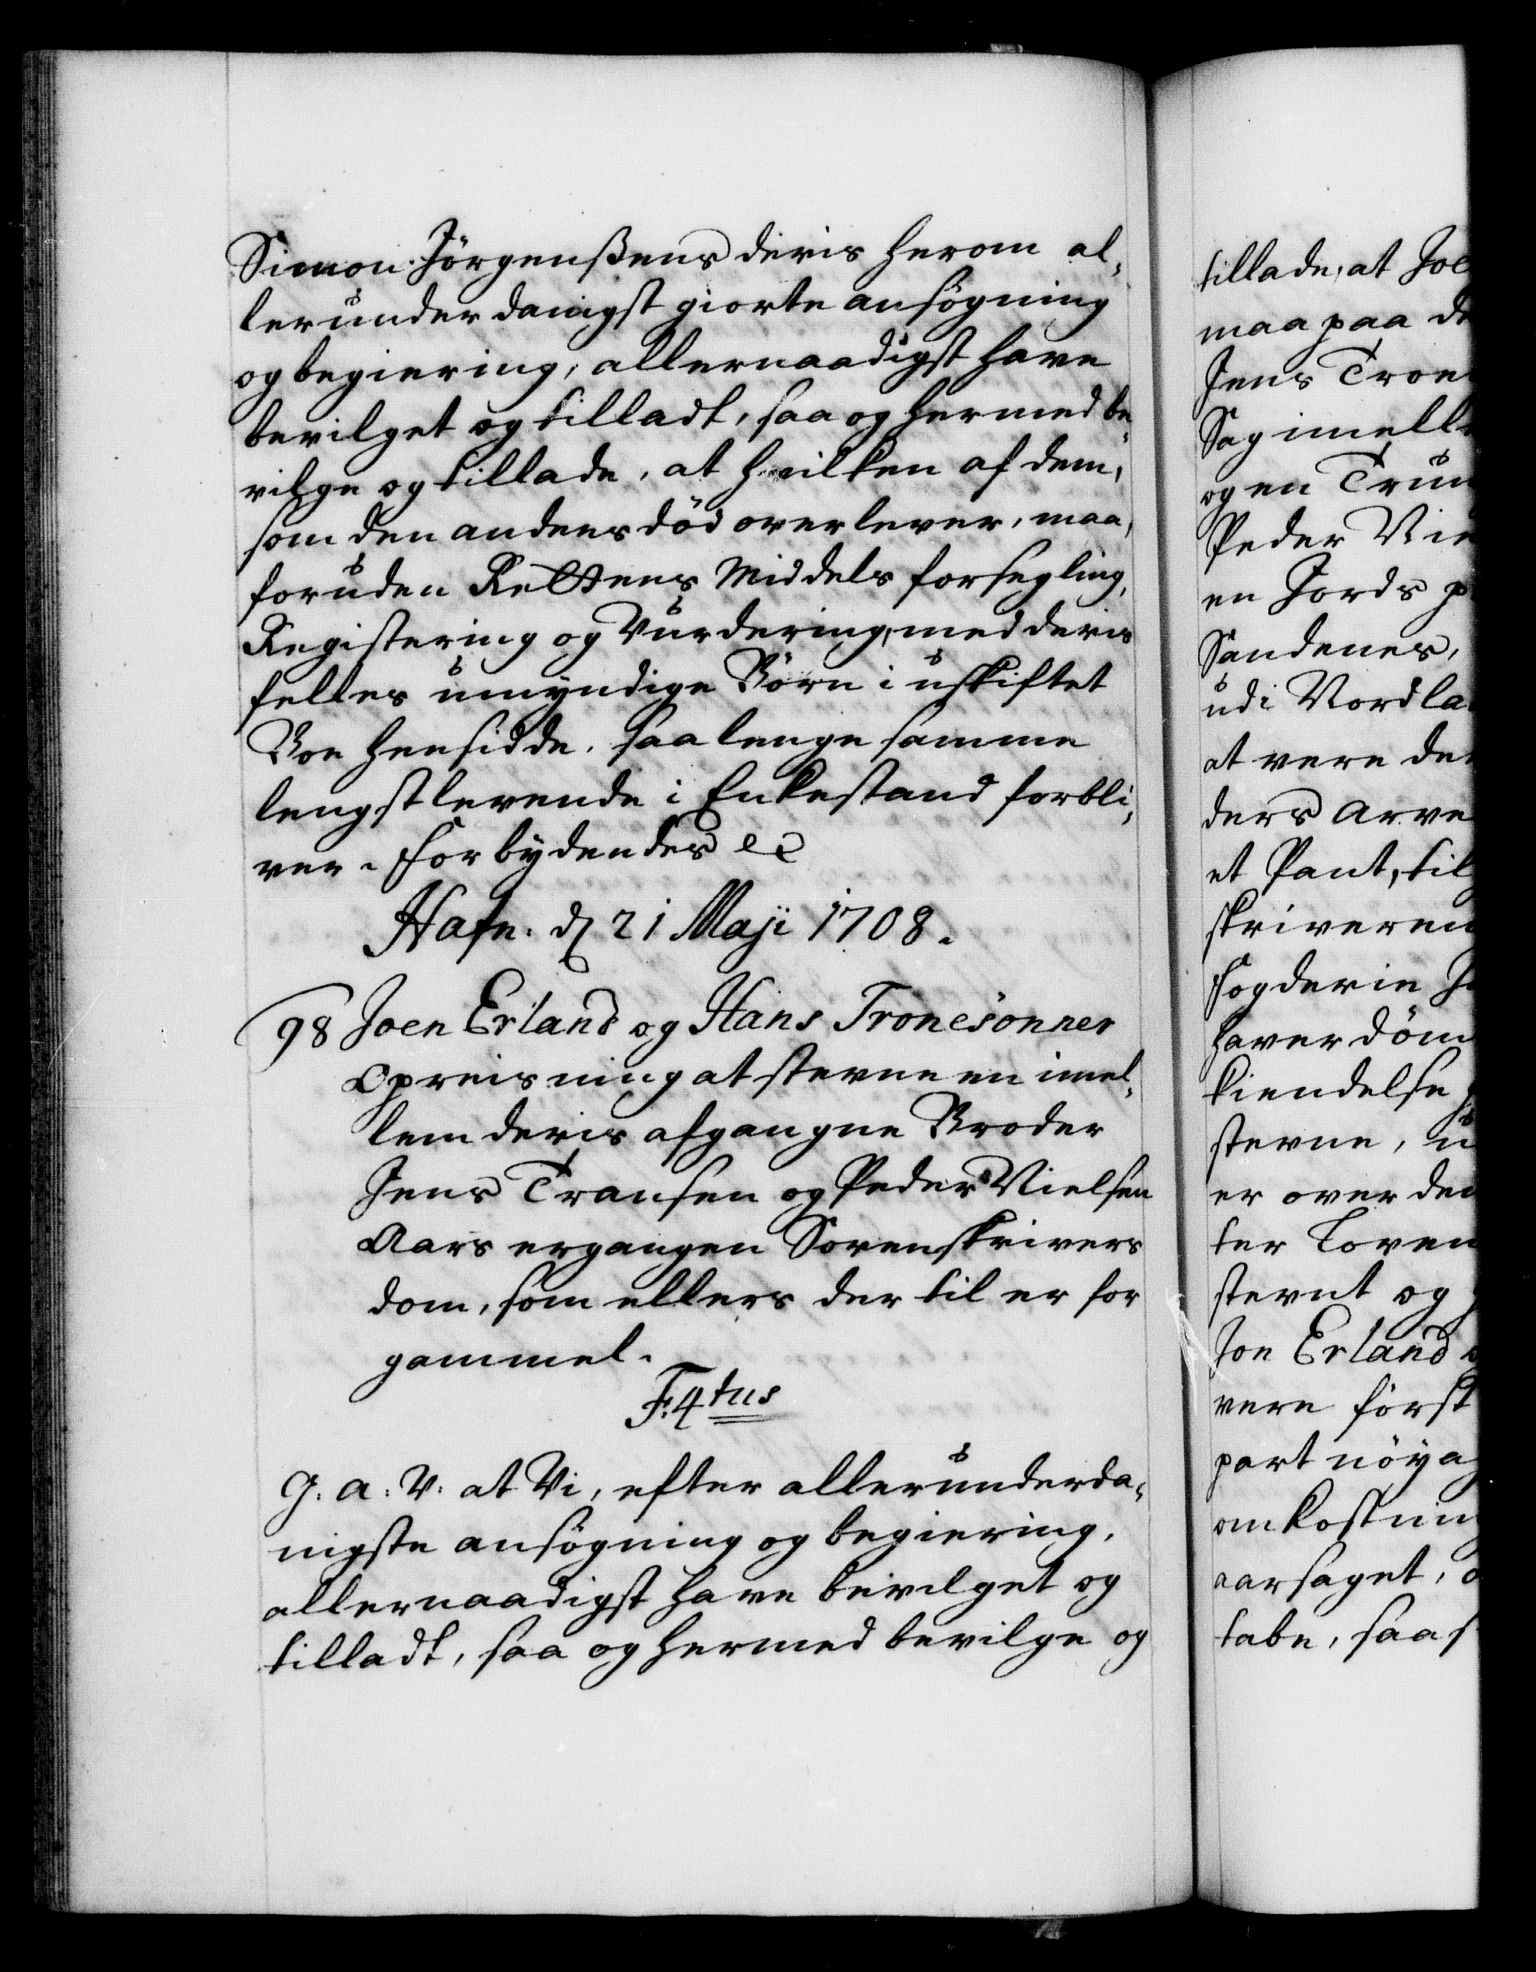 Simon Jørgenßens deris herom al,
lerunderdanigst giorte ansøgning
og begiering, allernaadigst have
bevilget og tilladt, saa og hermed be,
vilge og tillade, at hvilken af dem,
som den andens død overlever, maa,
foruden Rettens Middels forsegling,
Registering og Vurdering, med deris
felles umyndige Børn i uskiftet
Boe hensidde, saa lenge samme
lengstlevende i Enkestand forbli,
ver. Forbydendes etc
Hafn. d. 21 Maji 1708.
98 Joen Erland og Hans Tronesønner
Opreisning at stevne en imel,
lem deris afgangne Broder
Jens Transen og Peder Nielsen
Aars ergangen Sorenskrivers
dom, som ellers der til er for
gammel.
F. 4tus
G. A. V. at Vi, efter allerunderda,
nigste ansøgning og begiering,
allernaadigst have bevilget og
tilladt, saa og hermed bevilge og
tillade, at Joe
maa paa de
Jens Trone
Sag imelle
og en Trun
Peder Nie
en Jords p
Sandenes,
udi Nordla
at vere de
ders Arve
et Pant, til
skriveren
Fogderie
haver døm
kiendelse
stevne, u
er over den
ter Loven
stevnt og
Jon Erland
vere først
part nøya
omkostning
aarsaget,
tabe, saa s